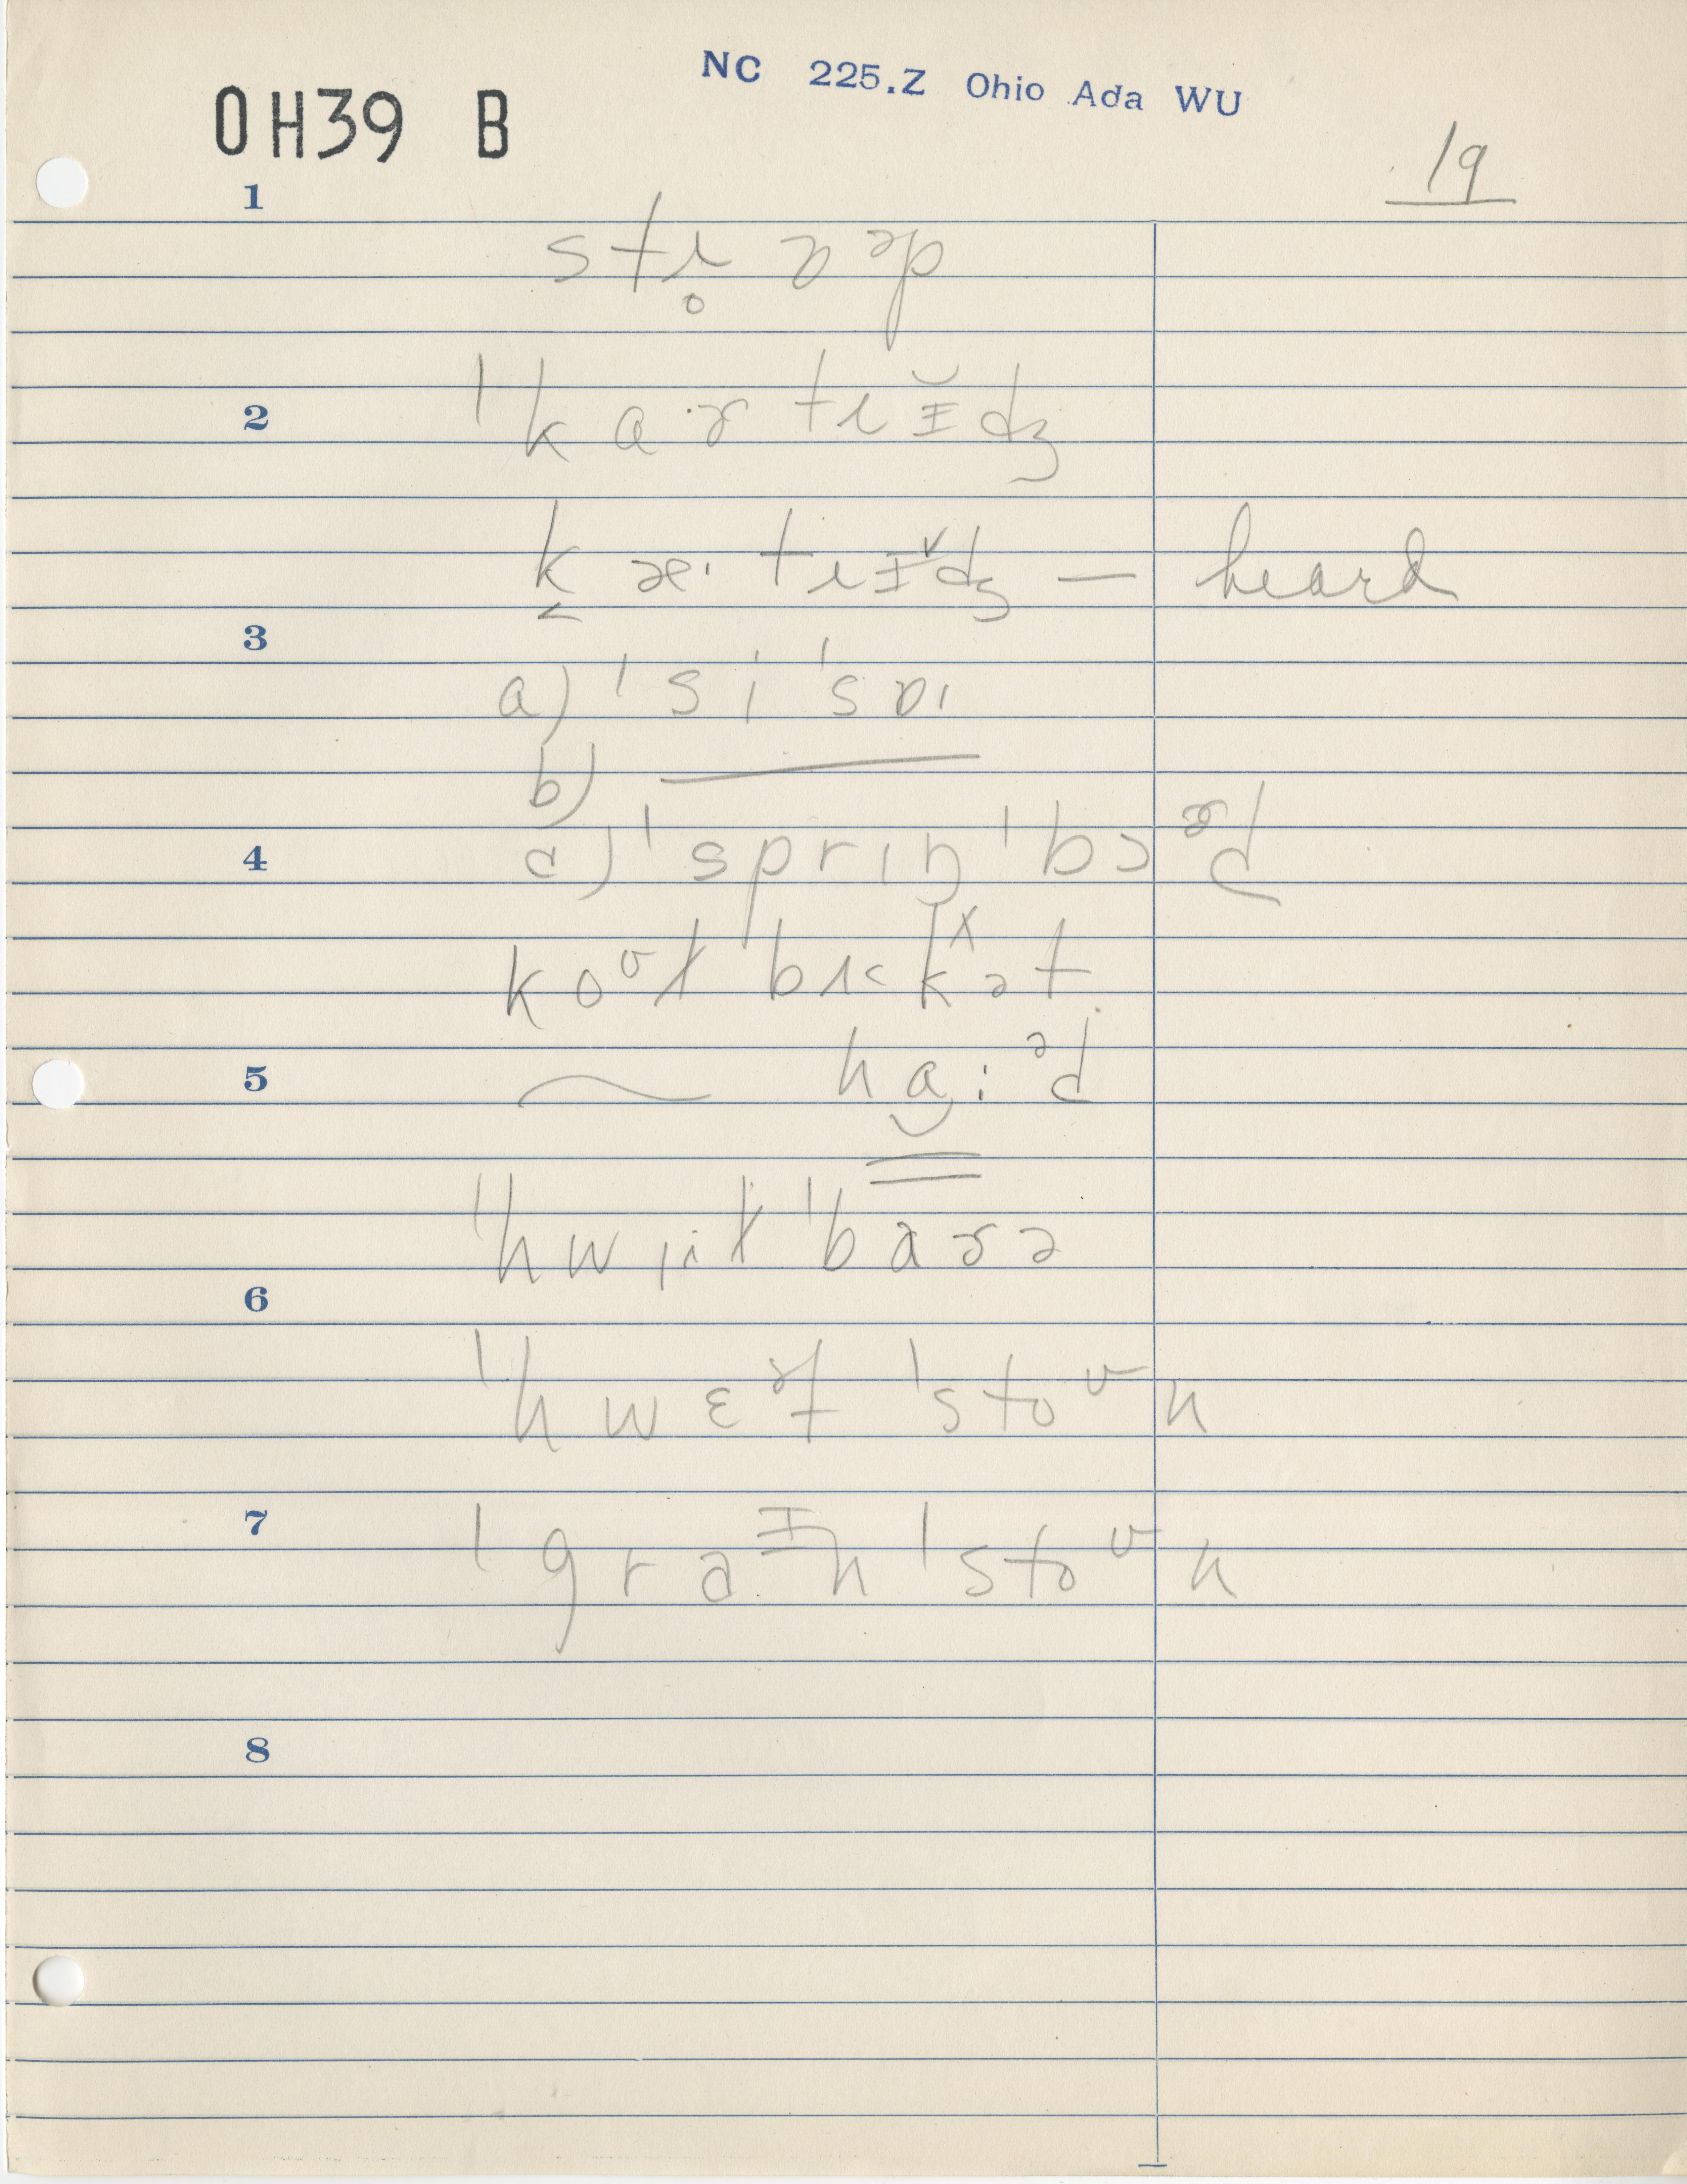 NC 225.Z Ohio Ada WU
OH39 B
19
1
stɹ̥ɒᵊp
2 ˈkɑɚtɹɪ̆dʒ
k̬æ·tɹɪˇdʒ — heard
3
a) ˈsiˈsɒ
b) ——
4 c) ˈsprɪŋˈbɔɚd
koᴼɫ bʌkˣət
5 ~ hɑ:ᵊd
ˈhwiɫˈbaɚə
6
ˈhwɛɚt ˈstoᶷn
7 ˈgraɪnˈstoᶷn
8